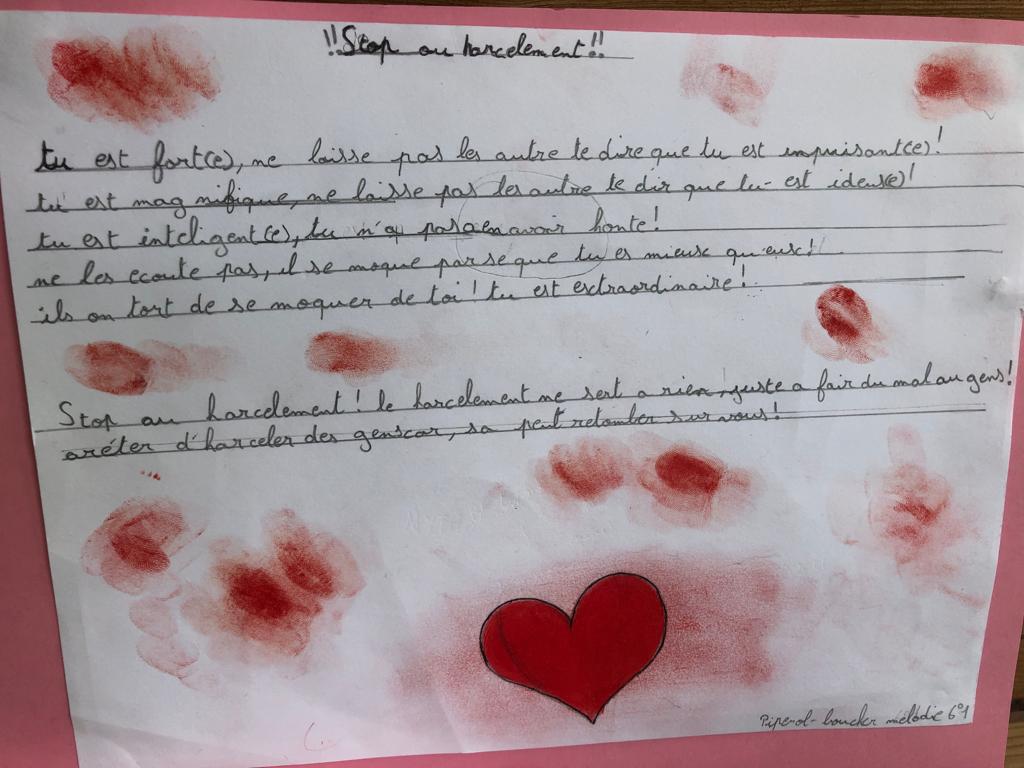 !!Stop au harcelement!!
tu est fort(e), ne laisse pas les autre te dire que tu est impuisant(e)!
tu est magnifique, ne laisse pas les autre te dir que tu est ideus(e)!
tu est inteligent(e), tu n'a pas a en avoir honte!
ne les ecoute pas, il se moque parse que tu es mieux qu'eux!
ils on tort de se moquer de toi! tu est extraordinaire!
Stop au harcelement! le harcelement ne sert a rien, juste a fair du mal au gens!
aréter d'harceler des gens car, sa peut retomber sur vous!
mélodie 6°1